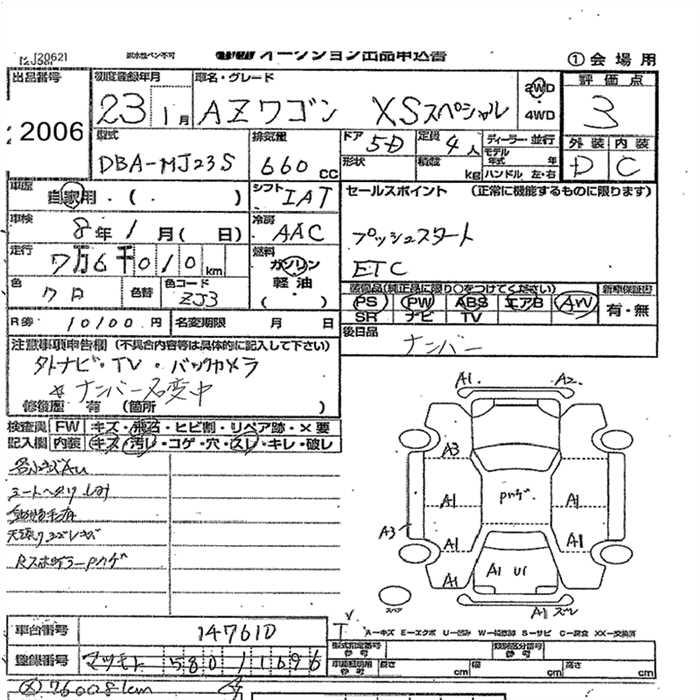 [2062]
オークション出品申込書
①会場用
出品番号
2006
初度登録年月
23年1月
車名・グレード
AZワゴン XSスペシャル
2WD
4WD
評価点
3
型式
DBA-MJ23S
排気量
660 CC
ドア
5D
形状
定員
4人
積載
kg
ディーラー・並行
モデル年式 年
ハンドル 左・右
外装 内装
D C
車歴
自家用・( )
シフト
IAT
セールスポイント (正常に機能するものに限ります)
車検
8年1月( 日)
冷房
AAC
プッシュスタート
ETC
走行
7万6千010km
燃料
ガソリン
軽油
( )
色
クロ
色替
色コード
ZJ3
装備品(純正品に限り○をつけてください)
PS PW ABS エアB AW
SR ナビ TV
新車保証書
有・無
R券 10100円
名変期限 月 日
後日品
ナンバー
注意事項申告欄 (不具合内容等は具体的に記入して下さい)
タトナビ・TV・バックカメラ
☆ナンバー名変中
修復歴 有 (箇所 )
検査員記入欄
FW キズ・飛石・ヒビ割・リペア跡・×要
内装 キズ・汚レ・コゲ・穴・スレ・キレ・破レ
A1. A2.
A3
A1 A1
A1 A1
A1
A3
A1 U1
A1 スレ
スペア
A-キズ E-エクボ U-凹み W-補修跡 S-サビ C-腐食 XX-交換済
車台番号
147610
登録番号
マツモト 580 1 1696
型式指定番号
類別区分番号
長さ cm 幅 cm 高さ cm
76008km